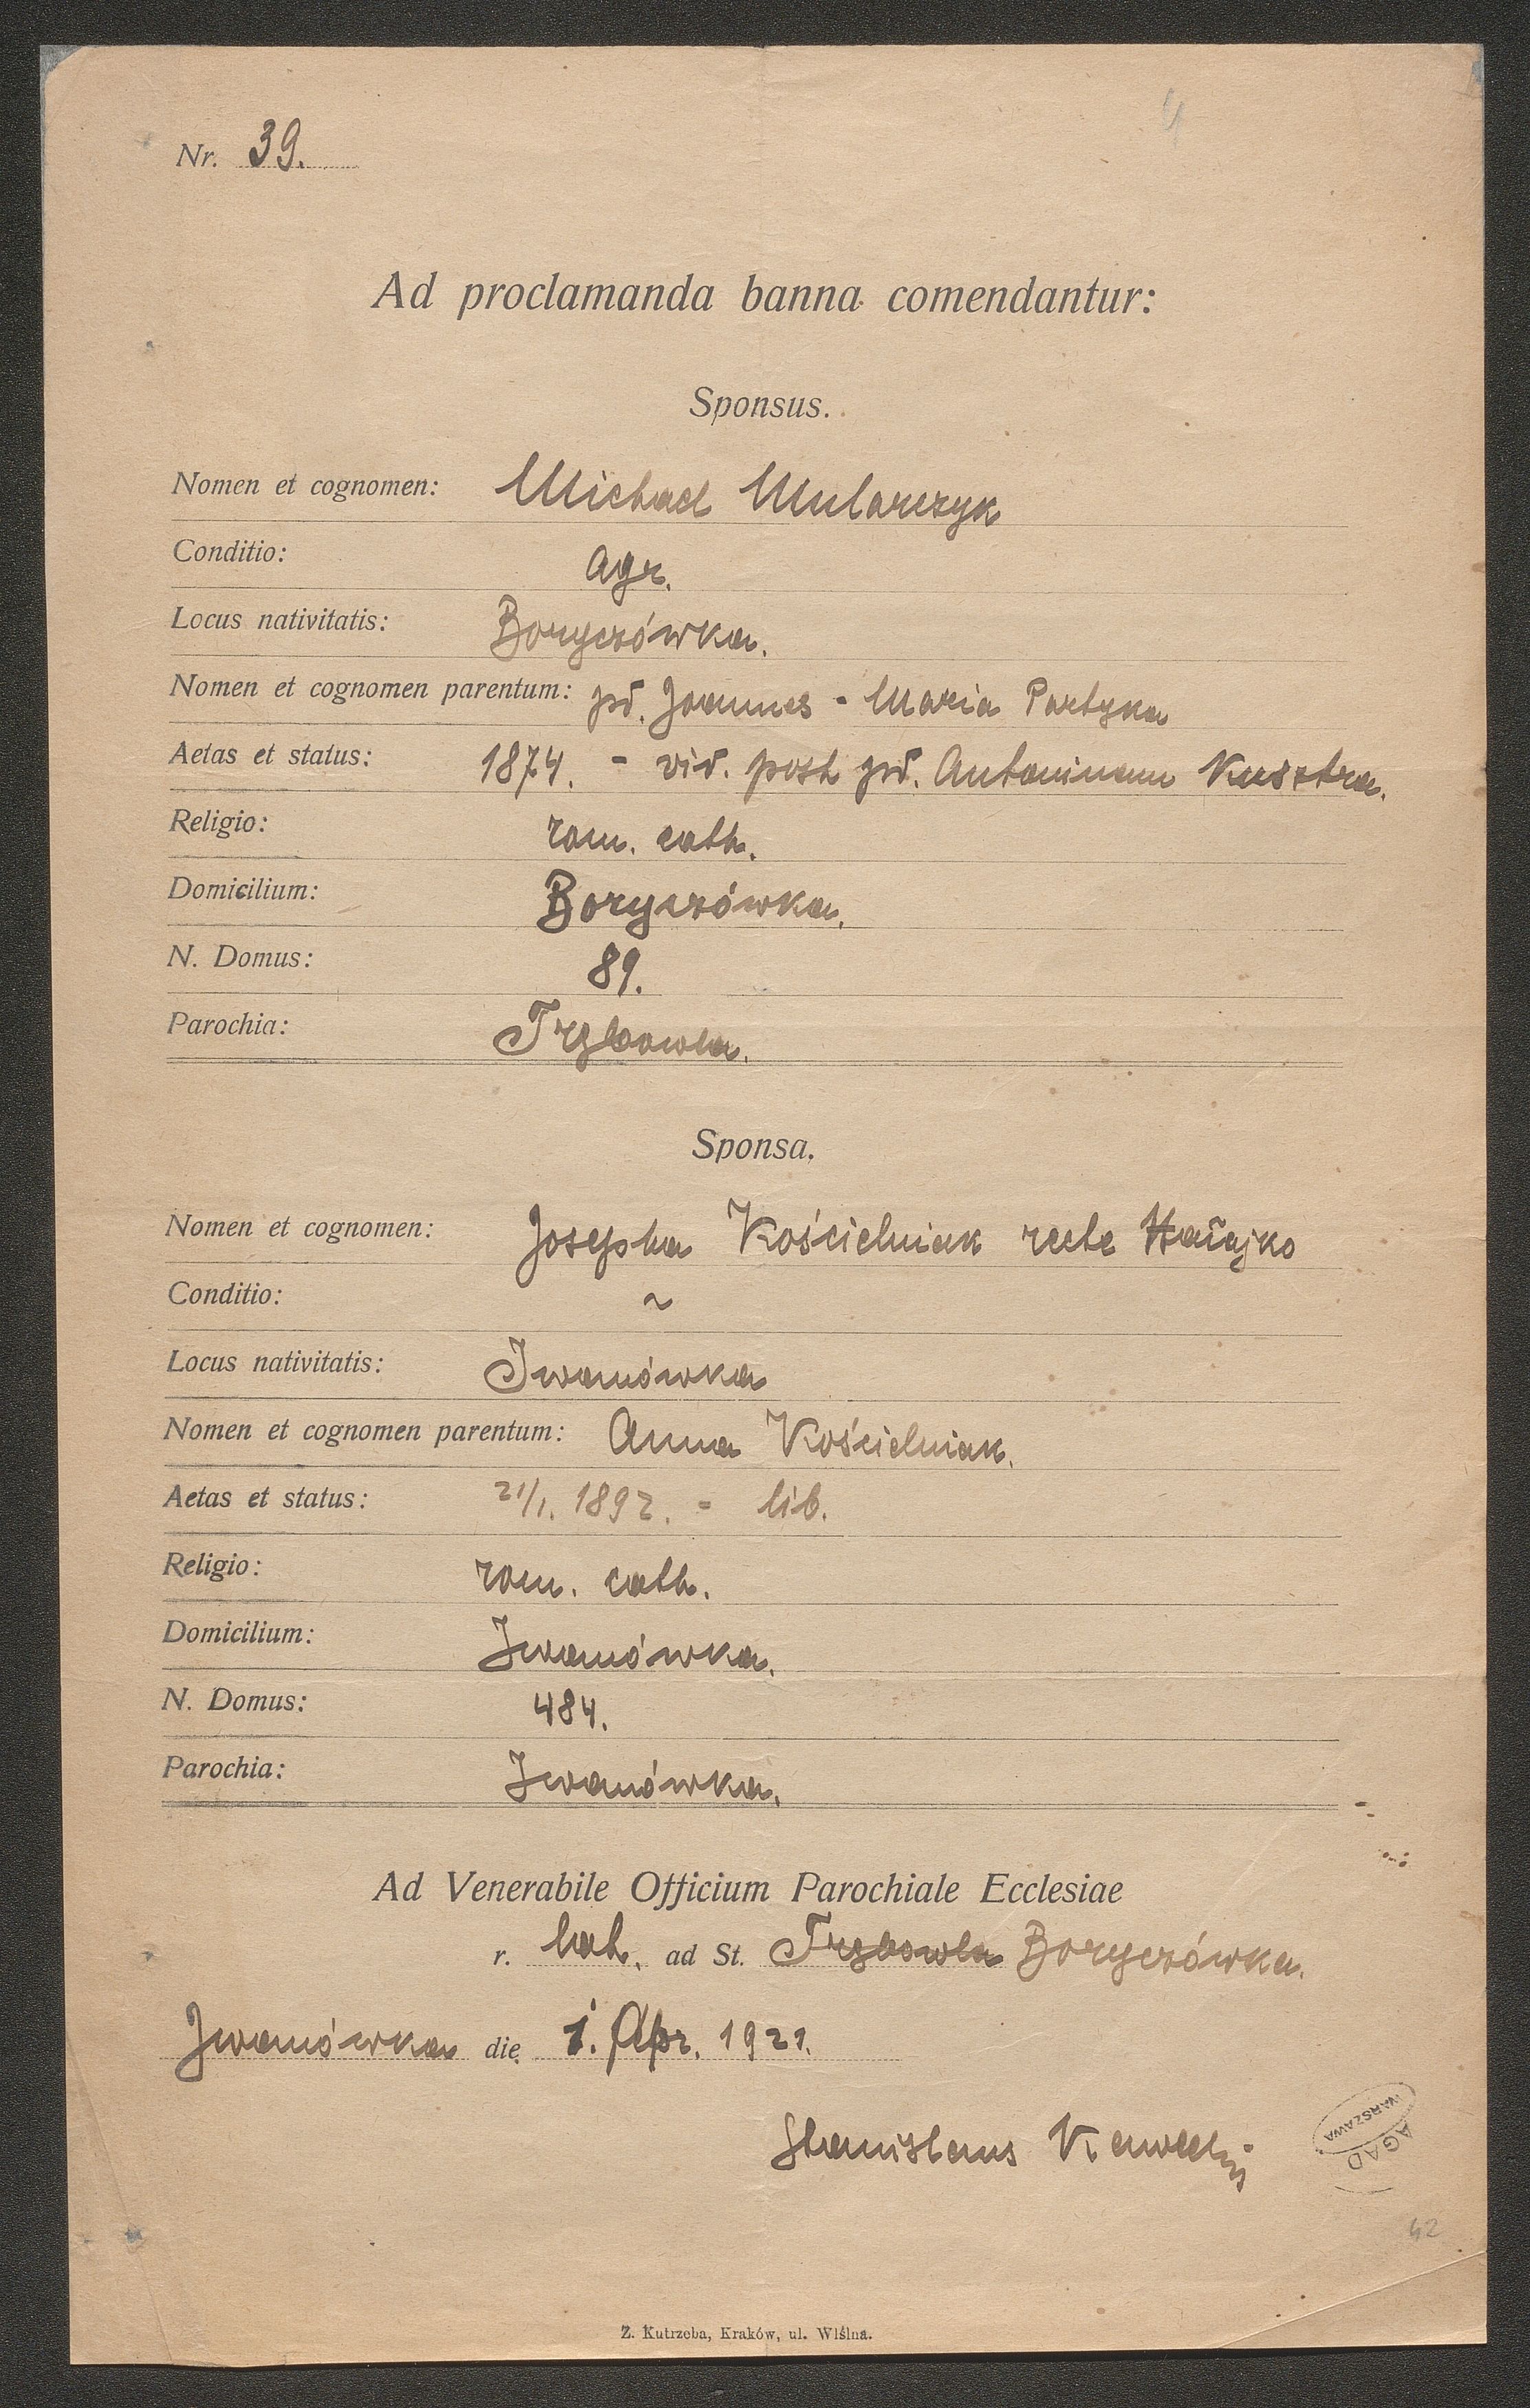 Nr. 39.
Ad proclamanda banna comendantur:
Sponsus.
Nomen et cognomen: Michael Mularczyk
Conditio: agr.
Locus nativitatis: Boryczówka.
Nomen et cognomen parentum: pd. Joannes - Maria Partyka
Aetas et status: 1874. - vid. post pd. Antoninam Kusztra.
Religio: rom. cath.
Domicilium: Boryczówka.
N. Domus: 89.
Parochia: Trębowla.
Sponsa.
Nomen et cognomen: Josepha Kościelniak recte Hałajko
Conditio: ~
Locus nativitatis: Iwanówka
Nomen et cognomen parentum: Anna Kościelniak.
Aetas et status: 21/1. 1892. - lib.
Religio: rom. cath.
Domicilium: Iwanówka.
N. Domus: 484.
Parochia: Iwanówka.
Ad Venerabile Officium Parochiale Ecclesiae
r. lat. ad St. Trębowla Boryczówka.
Iwanówka die 1. Apr. 1921.
Stanislaus
AGAD
WARSZAWA
42
Z. Kutrzeba, Kraków, ul. Wiślna.